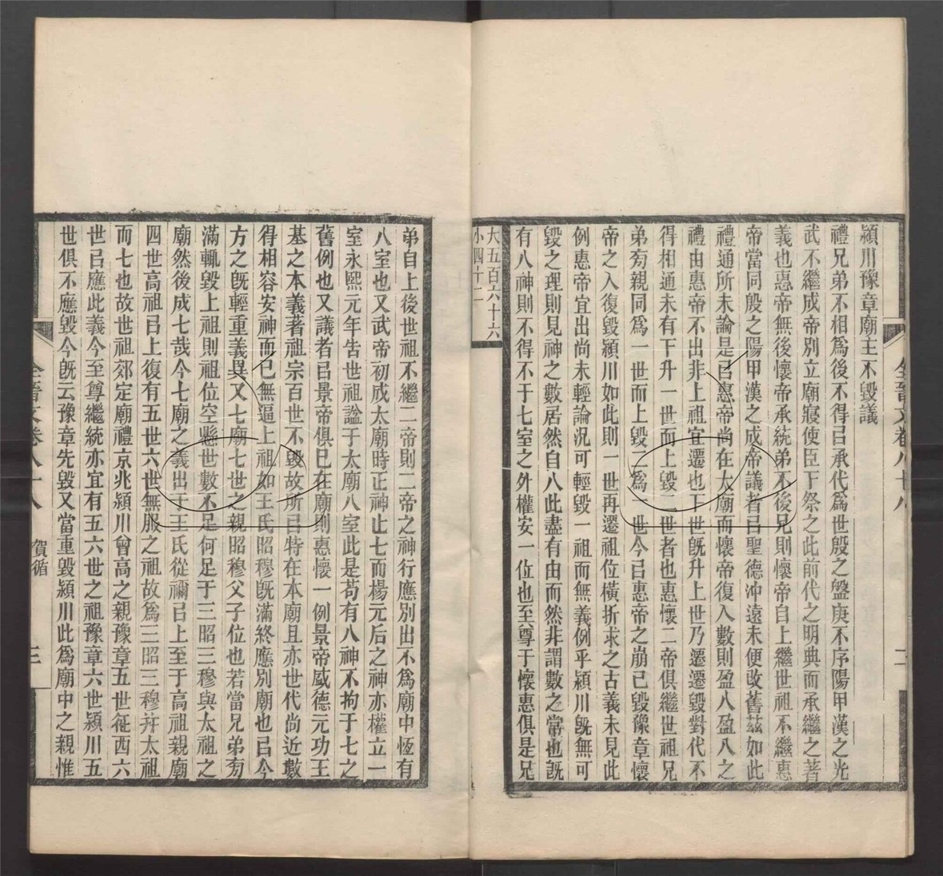 潁川豫章廟主不毀議
禮兄弟不相爲後不得㠯承代爲世殷之盤庚不序陽甲漢之光
武不繼成帝別立廟寢使臣下祭之此前代之明典而承繼之著
義也惠帝無後懷帝承統弟不後兄則懷帝自上繼世祖不繼惠
帝當同殷之陽甲漢之成帝議者㠯聖德沖遠未便改舊茲如此
禮通所未論是㠯惠帝尚在太廟而懷帝復入數則盈八盈八之
禮由惠帝不出非上祖宜遷也下世旣升上世乃遷遷毀對代不
得相通未有下升一世而上毀二世者也惠懷二帝俱繼世祖兄
弟㫄親同爲一世而上毀二爲一世今㠯惠帝之崩已毀豫章懷
帝之入復毀潁川如此則一世再遷祖位橫折求之古義未見此
例惠帝宜出尚未輕論況可輕毀一祖而無義例乎潁川旣無可
毀之理則見神之數居然自八此盡有由而然非謂數之常也旣
有八神則不得不于七室之外權安一位也至尊于懷惠俱是兄
大五百六十六
小四十二
全晉文卷八十八
二
弟自上後世祖不繼二帝則二帝之神行應別出不爲廟中恆有
八室也又武帝初成太廟時正神止七而楊元后之神亦權立一
室永熙元年告世祖諡于太廟八室此是苟有八神不拘于七之
舊例也又議者㠯景帝俱已在廟則惠懷一例景帝威德元功王
基之本義著祖宗百世不毀故所㠯特在本廟且亦世代尚近數
得相容安神而已無逼上祖如王氏昭穆旣滿終應別廟也㠯今
方之旣輕重義異又七廟七世之親昭穆父子位也若當兄弟㫄
滿輒毀上祖則祖位空懸世數不足何足于三昭三穆與太祖之
廟然後成七哉今七廟之義出于王氏從禰㠯上至于高祖親廟
四世高祖㠯上復有五世六世無服之祖故爲三昭三穆幷太祖
而七也故世祖郊定廟禮京兆潁川曾高之親豫章五世征西六
世㠯應此義今至尊繼統亦宜有五六世之祖豫章六世潁川五
世俱不應毀今旣云豫章先毀又當重毀潁川此爲廟中之親惟
全晉文卷八十八
賀循
三